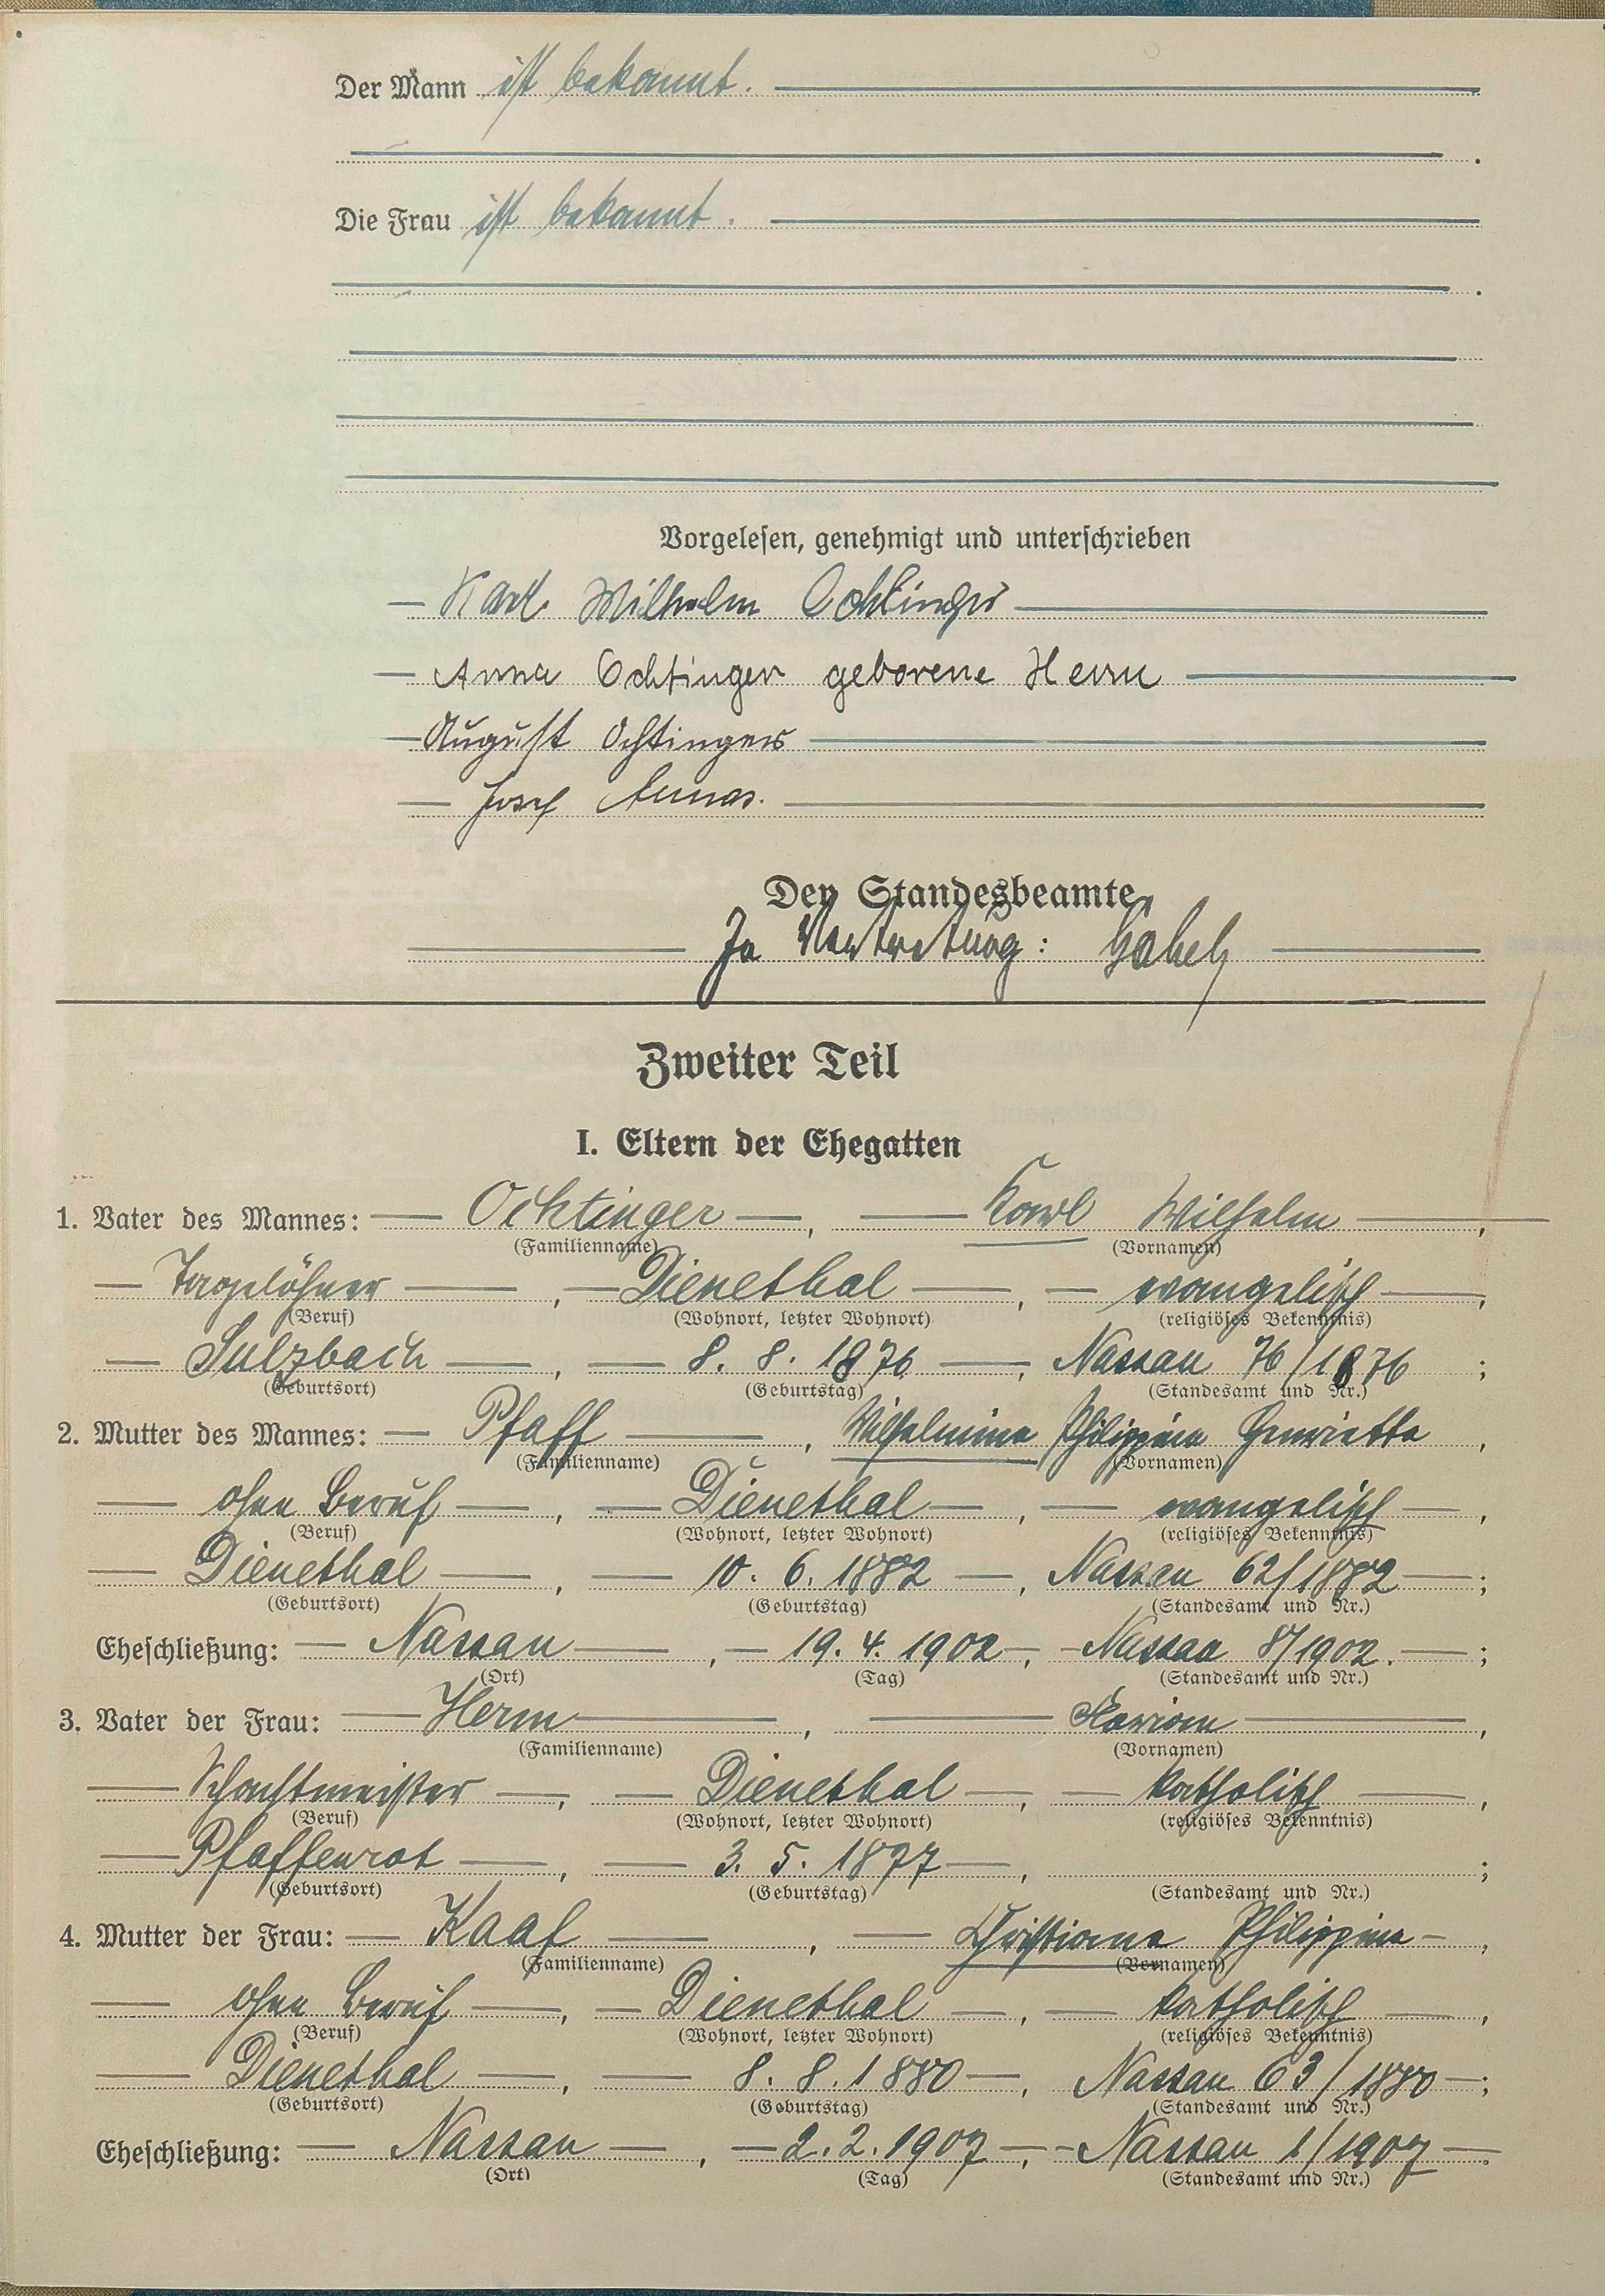 Der Mann ist bekannt.
Die Frau ist bekannt.
Vorgelesen, genehmigt und unterschrieben
Karl Wilhelm Ochtinger
Anna Ochtinger geborene Herm
August Ochtinger
Josef
Der Standesbeamte
In Vertretung:
Zweiter Teil
I. Eltern der Ehegatten
1. Vater des Mannes: Ochtinger, Karl Wilhelm,
(Familienname) (Vornamen)
Tagelöhner, Dienethal, evangelisch,
(Beruf) (Wohnort, letzter Wohnort) (religiöses Bekenntnis)
Sulzbach, 8. 8. 1876, Nassau 76/1876;
(Geburtsort) (Geburtstag) (Standesamt und Nr.)
2. Mutter des Mannes: Pfaff, Wilhelmine Philippine Henriette,
(Familienname) (Vornamen)
ohne Beruf, Dienethal, evangelisch,
(Beruf) (Wohnort, letzter Wohnort) (religiöses Bekenntnis)
Dienethal, 10. 6. 1882, Nassau 62/1882;
(Geburtsort) (Geburtstag) (Standesamt und Nr.)
Eheschließung: Nassau, 19. 4. 1902, Nassau 8/1902.;
(Ort) (Tag) (Standesamt und Nr.)
3. Vater der Frau: Herm,
(Familienname) (Vornamen)
Schachtmeister, Dienethal, katholisch,
(Beruf) (Wohnort, letzter Wohnort) (religiöses Bekenntnis)
Pfaffenrot, 3. 5. 1877, ;
(Geburtsort) (Geburtstag) (Standesamt und Nr.)
4. Mutter der Frau: Kaaf, Christiane Philippine,
(Familienname) (Vornamen)
ohne Beruf, Dienethal, katholisch,
(Beruf) (Wohnort, letzter Wohnort) (religiöses Bekenntnis)
Dienethal, 8. 8. 1880, Nassau 63/1880;
(Geburtsort) (Geburtstag) (Standesamt und Nr.)
Eheschließung: Nassau, 2. 2. 1907, Nassau 1/1907.
(Ort) (Tag) (Standesamt und Nr.)